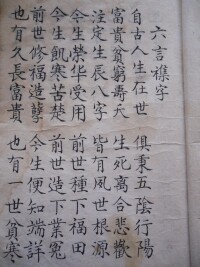 六言襍字
自古人生在世 俱秉五陰行陽
富貴貧窮壽夭 生死離合悲歡
注定生辰八字 皆有夙世根源
今生榮华受用 前世種下福田
今生飢寒苦楚 前世造下業冤
前世修福造孽 今生便知端詳
也有久長富貴 也有一世貧寒